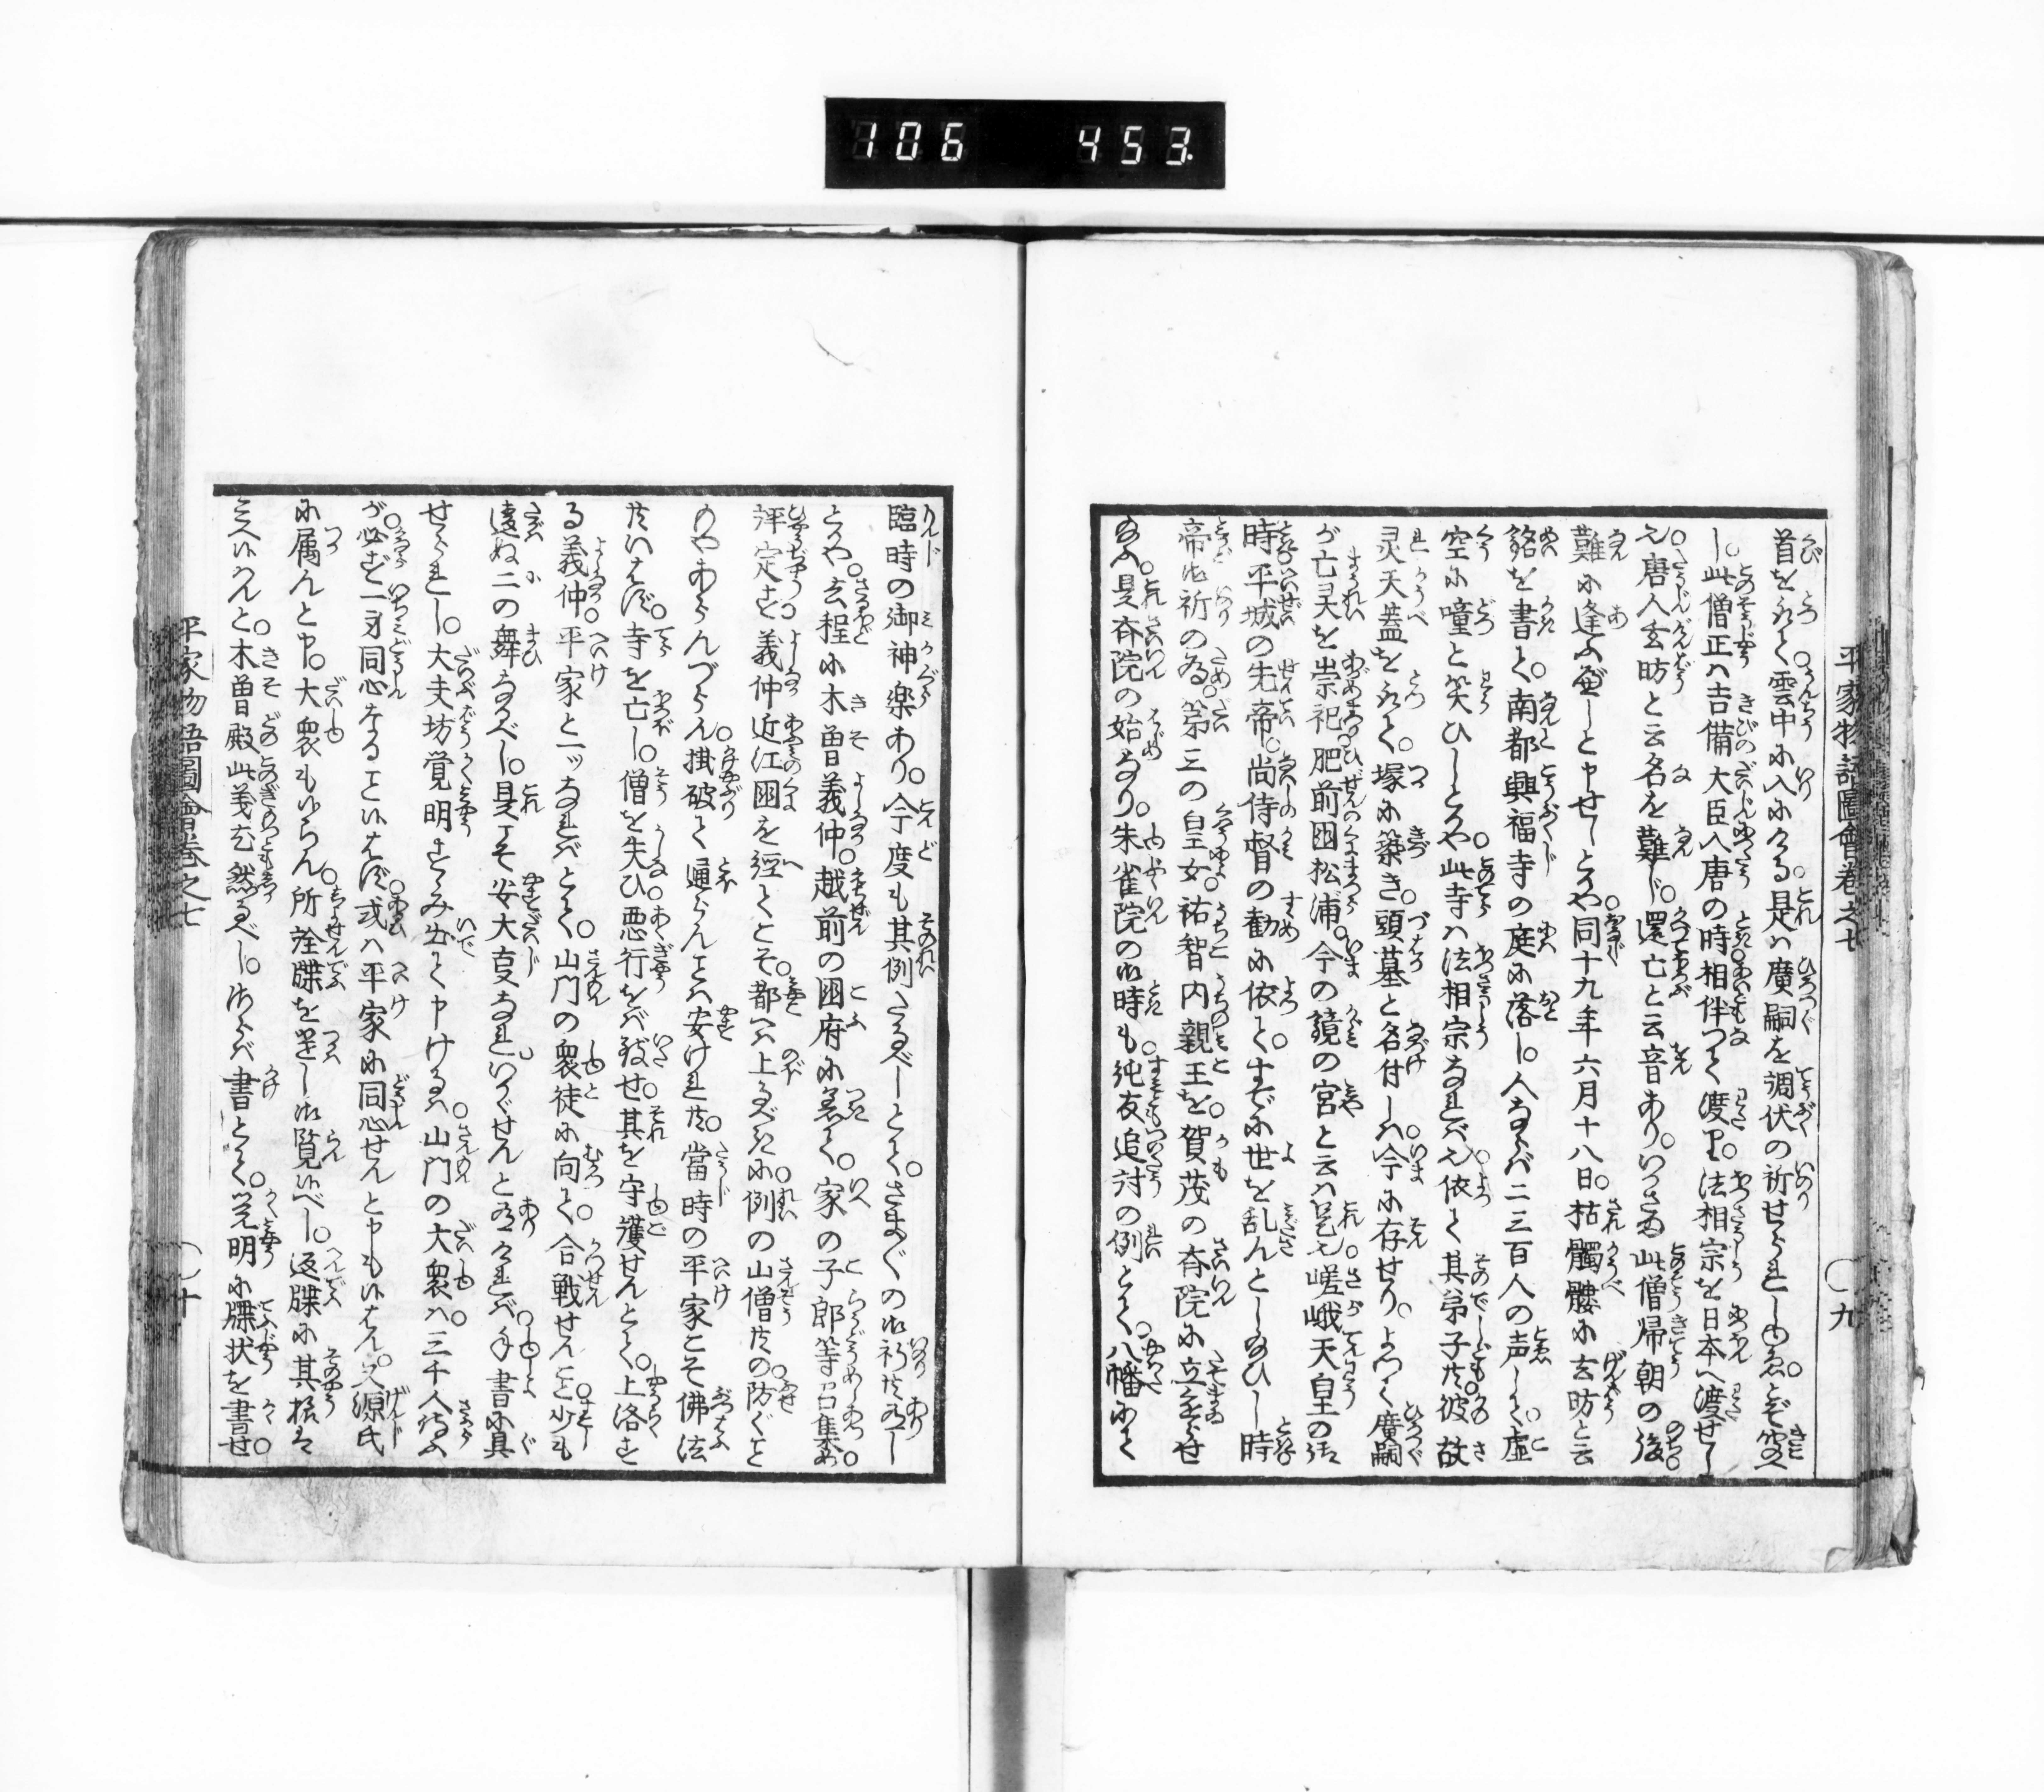 106 453.
平家物語圖會巻之七 九
首を取て雲中に入にける是は廣嗣を調伏の祈せられしゆゑとぞ聞へ
し此僧正ハ吉備大臣入唐の時相伴つて渡り法相宗を日本へ渡せし
也唐人玄昉と云名を難じ還亡と云音ありいかさま此僧帰朝の後
難に逢ふべしと申せしとかや同十九年六月十八日枯髑髏に玄昉と云
銘を書て南都興福寺の庭に落し人ならバ二三百人の声して虚
空に噇と笑ひしとかや此寺ハ法相宗なれバ也依て其弟子共彼故
灵天蓋を取て塚に築き頭墓と名付しハ今に存せりよつて廣嗣
が亡灵を崇祀肥前国松浦今の鏡の宮と云ハ是也嵯峨天皇の御
時平城の先帝尚侍督の勧に依てすでに世を乱んとし給ひし時
帝御祈の為第三の皇女祐智内親王を賀茂の斎院に立まゐらせ
給ふ是斎院の始なり朱雀院の御時も純友追討の例とて八幡にて
臨時の御神楽あり今度も其例さるべしとてさまざまの御祈共有し
とかや去程に木曽義仲越前の国府に着て家の子郎等召集め
評定す義仲近江国を經てこそ都へハ上るべきに例の山僧共の防ぐこと
もやあらんづらん掛破て通らんことハ安けれ共當時の平家こそ佛法
共いはず寺を亡し僧を失ひ悪行をバ致せ其を守護せんとて上洛す
る義仲平家と一ッなれバとて山門の衆徒に向て合戦せんこと少も
違ぬ二の舞なるべし是こそ安大事なれいかゞせんと有けれバ手書に具
せられし大夫坊覚明すゝみ出て申けるハ山門の大衆ハ三千人候ふ
が必ず一身同心なることいはず或ハ平家に同心せんと申もいはん又源氏
に属んと申大衆もいらん所詮牒を送し御覧いべし返牒に其様は
こへいんと木曽殿此義尤然るべしさらバ書とて覚明に牒状を書せ
平家物語圖會巻之七 十